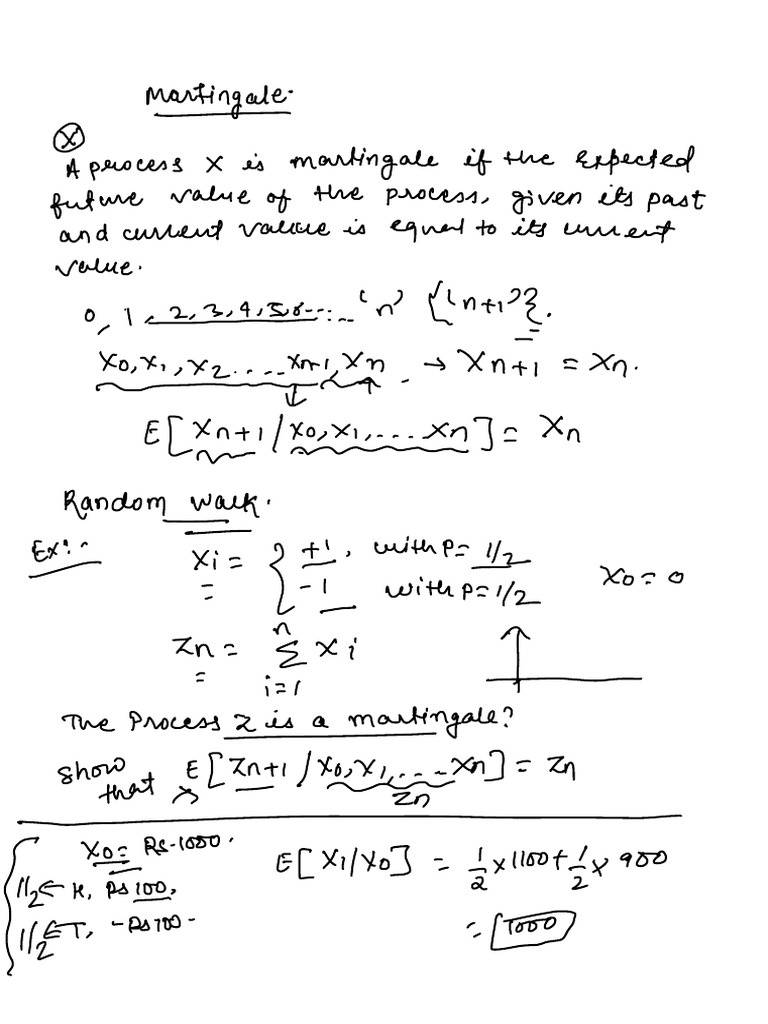 Martingale.
X
A process X is martingale if the Expected
future value of the process, given its past
and current value is equal to its current
value.
0, 1, 2, 3, 4, 5, 6 ---... 'n' {'n+1'}.
X0, X1, X2 .... Xn-1, Xn → Xn+1 = Xn.
E[Xn+1 / X0, X1, .... Xn] = Xn
Random walk.
Ex:-
Xi = { +1, with P = 1/2
-1 with P = 1/2
X0 = 0
Zn = n Σ i=1 Xi
The Process Z is a martingale?
Show that E[Zn+1 / X0, X1, .... Xn] = Zn
Zn
X0 = Rs-1000.
1/2 ← H, Rs 100,
1/2 ← T, -Rs 100-
E[X1/X0] = 1/2 x 1100 + 1/2 x 900
= 1000